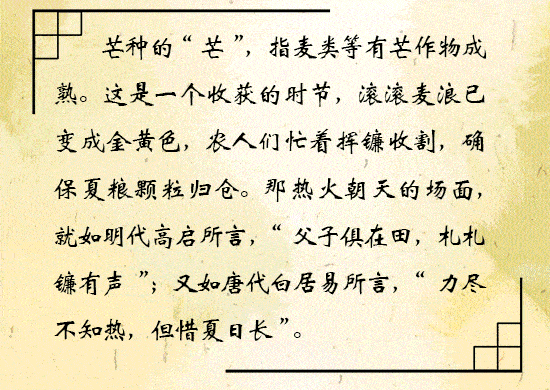 芒种的“芒”，指麦类等有芒作物成
熟。这是一个收获的时节，滚滚麦浪已
变成金黄色，农人们忙着挥镰收割，确
保夏粮颗粒归仓。那热火朝天的场面，
就如明代高启所言，“父子俱在田，札札
镰有声”；又如唐代白居易所言，“力尽
不知热，但惜夏日长”。